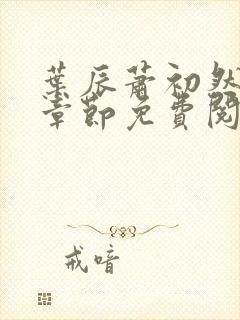 葉辰蕭初然
章節免費閱
戒喑